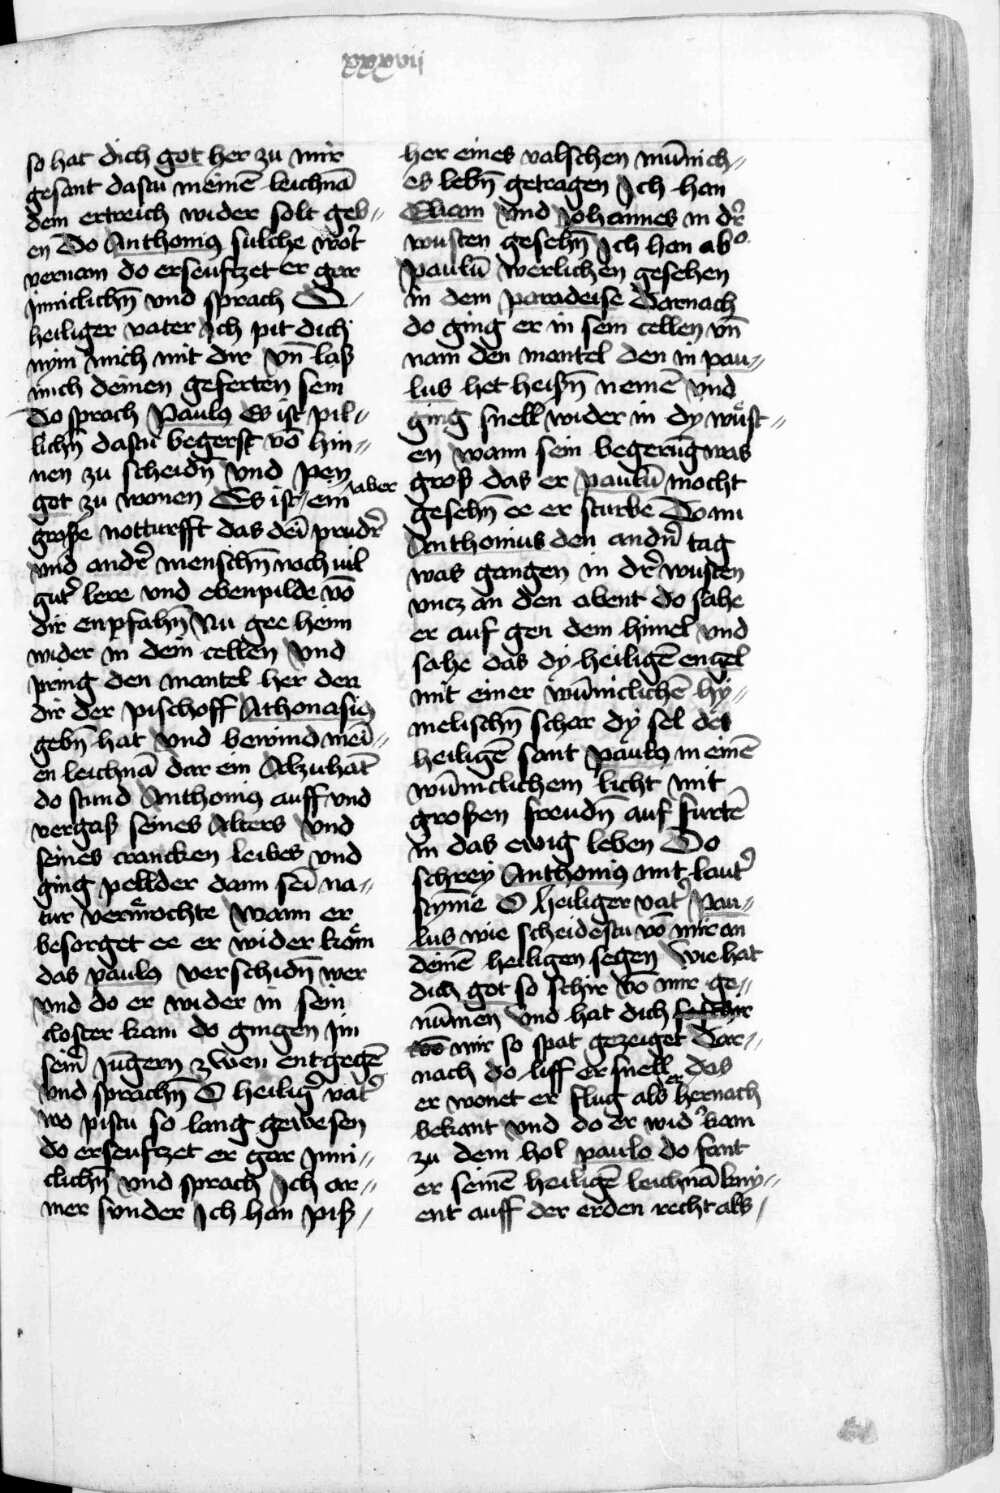 xxxvii
so hat dich got her zu mir
gesant dastu meinē leichnā
dem ertreich wider solt geb〃
en Do Anthoniꝰ sulche wort̄
vernam do erseuftzet er gar
jnniclichn̄ vnd sprach O
heiliger vater Ich pit dich
nym mich mit dir vn̄ laß
mich deinen geferten sein
Do sprach Paulꝰ Es ist pil〃
lichn̄ dastu begerst vō hin〃
nen zu scheidn̄ vnd pey
got zu wonen Es ist aber ein
große notturfft das dei̅ prudr̄
vnd andr̄ menschn̄ noch vil
gutr̄ lere vnd ebenpilde vō
dir enpfahn̄ Nu gee heim
wider in dein cellen vnd
pring den mantel her den
dir der pischoff Athonasiꝰ
gebn̄ hat vnd bewind mei̅〃
en leichnā dar ein Alzuhāt
do stund Anthoniꝰ auff vnd
vergaß seines Alters vnd
seines crancken leibes vnd
ging pellder dann sei̅ na〃
tur vermöchte Wann er
besorget ee er wider köm
das paulꝰ verschidn̄ wer
vnd do er wider in sein
closter kam do gingen jm
seinr̄ jūgern zwen entgegē
vnd sprachn̄ O heiligr̄ vatr̄
wo pistu so lang gewesen
do erseuftzet er gar jnni〃
clichn̄ vnd sprach Ich ar〃
mer sunder Ich han piß〃
her eines valschen mūnich〃
es lebn̄ getragen Ich han
Eliam vnd Johannes in dr̄
wusten gesehn̄ Ich han abr̄
paulū werlichen gesehen
in dem paradeise Darnach
do ging er in sein cellen vn̄
nam den mantel den in pau〃
lus het heißn̄ nemē vnd
ging snell wider in dy wüst〃
en wann sein begerūg was
groß das er paulū mocht
gesehn̄ ee er sturbe Do nu
Anthonius den andn̄ tag
was gangen in dr̄ wusten
vncz an den abent do sahe
er auf gen dem himel vnd
sahe das dy heiligē engel
mit einer wūniclichē hy〃
melischn̄ schar dy sel des
heiligē sant paulꝰ in einē
wūniclichem licht mit
großen freudn̄ auf furtē
in das ewig leben Do
schrey Anthoniꝰ mit lautr̄
stymē O heiliger vatr̄ Pau〃
lus wie scheidestu vō mir an
deinē heiligen segen Wie hat
dich got so schir vō mir ge〃
nūmen vnd hat dich
vō mir so spat gezeiget Dar〃
nach do liff er snell das
er wonet er flug als er hernach
bekant vnd do er widr̄ kam
zu dem hol paulo do fant
er seinē heiligē leichnā kny〃
ent auff der erden recht als